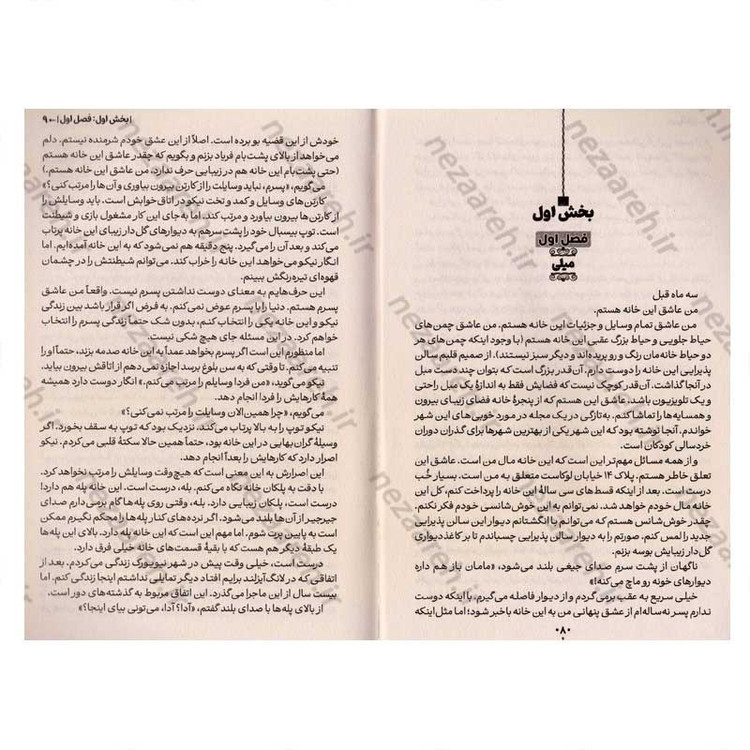 بخش اول
فصل اول
میلی
سه ماه قبل
من عاشق این خانه هستم.
من عاشق تمام وسایل و جزئیات این خانه هستم. من عاشق چمن‌های
حیاط جلویی و حیاط بزرگ عقبی این خانه هستم (با وجود اینکه چمن‌های هر
دو حیاط خانه‌مان رنگ و رو پریده‌اند و دیگر سبز نیستند). از صمیم قلبم سالن
پذیرایی این خانه را دوست دارم. آن‌قدر بزرگ است که بتوان چند دست مبل
در آنجا گذاشت. آن‌قدر کوچک نیست که فضایش فقط به اندازهٔ یک مبل راحتی
و یک تلویزیون باشد. عاشق این هستم که از پنجرهٔ خانه فضای زیبای بیرون
و همسایه‌ها را تماشا کنم. به‌تازگی در یک مجله در مورد خوبی‌های این شهر
خواندم. آنجا نوشته بود که این شهر یکی از بهترین شهرها برای گذران دوران
خردسالی کودکان است.
و از همه مسائل مهم‌تر این است که این خانه مال من است. عاشق این
تعلق خاطر هستم. پلاک ۱۴ خیابان لوکاست متعلق به من است. بسیار خُب
درست است. بعد از اینکه قسط‌های سی سالهٔ این خانه را پرداخت کنم، کل این
خانه مال خودم خواهد شد. نمی‌توانم به این خوش‌شانسی خودم فکر نکنم.
چقدر خوش‌شانس هستم که می‌توانم با انگشتانم دیوار این سالن پذیرایی
جدید را لمس کنم. صورتم را به دیوار سالن پذیرایی چسباندم تا بر کاغذدیواری
گل‌دار زیبایش بوسه بزنم.
ناگهان از پشت سرم صدای جیغی بلند می‌شود، «مامان باز هم داره
دیوارهای خونه رو ماچ می‌کنه!»
خیلی سریع به عقب برمی‌گردم و از دیوار فاصله می‌گیرم، با اینکه دوست
ندارم پسر نه‌ساله‌ام از عشق پنهانی من به این خانه باخبر شود؛ اما مثل اینکه
۰۸۰
|بخش اول: فصل اول| ۹
خودش از این قضیه بو برده است. اصلاً از این عشق خودم شرمنده نیستم. دلم
می‌خواهد از بالای پشت‌بام فریاد بزنم و بگویم که چقدر عاشق این خانه هستم
(حتی پشت‌بام این خانه هم در زیبایی حرف ندارد، من عاشقش هستم.)
می‌گویم، «پسرم، نباید وسایلت را از کارتن بیرون بیاوری و آن‌ها را مرتب کنی؟»
کارتن‌های وسایل و کمد و تخت نیکو در اتاق‌خوابش است. باید وسایلش را
از کارتن‌ها بیرون بیاورد و مرتب کند. اما به‌جای این کار مشغول بازی و شیطنت
است. توپ بیسبال خود را پشت‌سرهم به دیوارهای گل‌دار زیبای این خانه پرتاب
می‌کند و بعد آن را می‌گیرد. پنج دقیقه هم نمی‌شود که به این خانه آمده‌ایم. اما
انگار نیکو می‌خواهد این خانه را خراب کند. می‌توانم شیطنتش را در چشمان
قهوه‌ای تیره‌رنگش ببینم.
این حرف‌هایم به معنای دوست نداشتن پسرم نیست. واقعاً من عاشق
پسرم هستم. دنیا را با پسرم عوض نمی‌کنم. به فرض اگر قرار باشد بین زندگی
نیکو و این خانه یکی را انتخاب کنم، بدون شک حتماً زندگی پسرم را انتخاب
خواهم کرد. در این مسئله جای هیچ شکی نیست.
اما منظورم این است اگر پسرم بخواهد عمداً به این خانه صدمه بزند، حتماً او را
تنبیه می‌کنم. تا وقتی که به سن بلوغ برسد اجازه نمی‌دهم از اتاقش بیرون بیاید.
نیکو می‌گوید، «من فردا وسایلم را مرتب می‌کنم.» انگار دوست دارد همیشه
همهٔ کارهایش را فردا انجام دهد.
می‌گویم، «چرا همین‌الان وسایلت را مرتب نمی‌کنی؟»
نیکو توپ را به بالا پرتاب می‌کند. نزدیک بود که توپ به سقف بخورد. اگر
وسیلهٔ گران‌بهایی در این خانه بود، حتماً همین حالا سکتهٔ قلبی می‌کردم. نیکو
اصرار دارد که کارهایش را بعداً انجام دهد.
این اصرارش به این معنی است که هیچ‌وقت وسایلش را مرتب نخواهد کرد.
با دقت به پلکان خانه نگاه می‌کنم. بله، درست است. این خانه پله هم دارد!
درست است، پلکان زیبایی دارد. بله، وقتی روی پله‌ها گام برمی‌دارم صدای
جیرجیر از آن‌ها بلند می‌شود. اگر نرده‌های کنار پله‌ها را محکم نگیرم ممکن
است به پایین پرت شوم. اما مهم این است که این خانه پله دارد. بالای این پله‌ها
یک طبقهٔ دیگر هم هست که با بقیهٔ قسمت‌های خانه خیلی فرق دارد.
درست است، خیلی وقت پیش در شهر نیویورک زندگی می‌کردم. بعد از
اتفاقی که در لانگ‌آیلند برایم افتاد دیگر تمایلی نداشتم اینجا زندگی کنم. اما
بیست سال از این ماجرا می‌گذرد. این اتفاق مربوط به گذشته‌های دور است.
از بالای پله‌ها با صدای بلند گفتم، «آدا؟ آدا، می‌تونی بیای اینجا؟»
nezaareh.ir